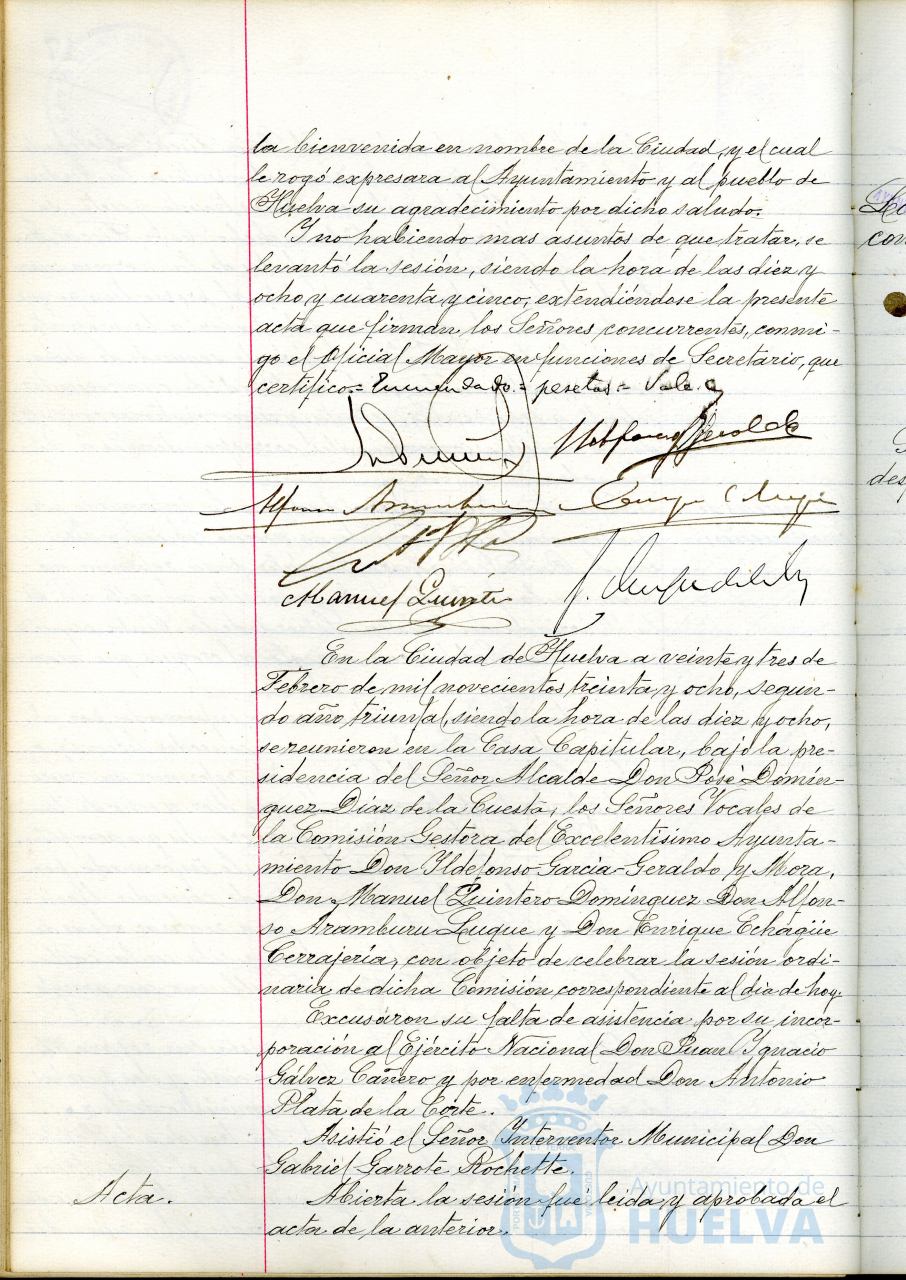 la bienvenida en nombre de la Ciudad, y el cual
le rogó expresara al Ayuntamiento y al pueblo de
Huelva su agradecimiento por dicho saludo.
Y no habiendo mas asuntos de que tratar, se
levantó la sesión, siendo la hora de las diez y
ocho y cuarenta y cinco, extendiéndose la presente
acta que firman los Señores concurrentes, conmi-
go el Oficial Mayor en funciones de Secretario, que
certifico.= Enmendado.= pesetas.= Vale.
Manuel Quintero
En la Ciudad de Huelva a veinte y tres de
Febrero de mil novecientos treinta y ocho, segun-
do año triunfal, siendo la hora de las diez y ocho,
se reunieron en la Casa Capitular, bajo la pre-
sidencia del Señor Alcalde Don José Domín-
guez Díaz de la Cuesta, los Señores Vocales de
la Comisión Gestora del Excelentísimo Ayunta-
miento Don Ildefonso García-Geraldo y Mora,
Don Manuel Quintero Domínguez Don Alfon-
so Aramburu Luque y Don Enrique Echagüe
Cerrajería, con objeto de celebrar la sesión ordi-
naria de dicha Comisión correspondiente al día de hoy.
Excusaron su falta de asistencia por su incor-
poración al Ejército Nacional Don Juan Ignacio
Gálvez Cañero y por enfermedad Don Antonio
Plata de la Corte.
Asistió el Señor Interventor Municipal Don
Gabriel Garrote Rochette.
Acta.
Abierta la sesión fue leida y aprobada el
acta de la anterior.
Ayuntamiento de
HUELVA